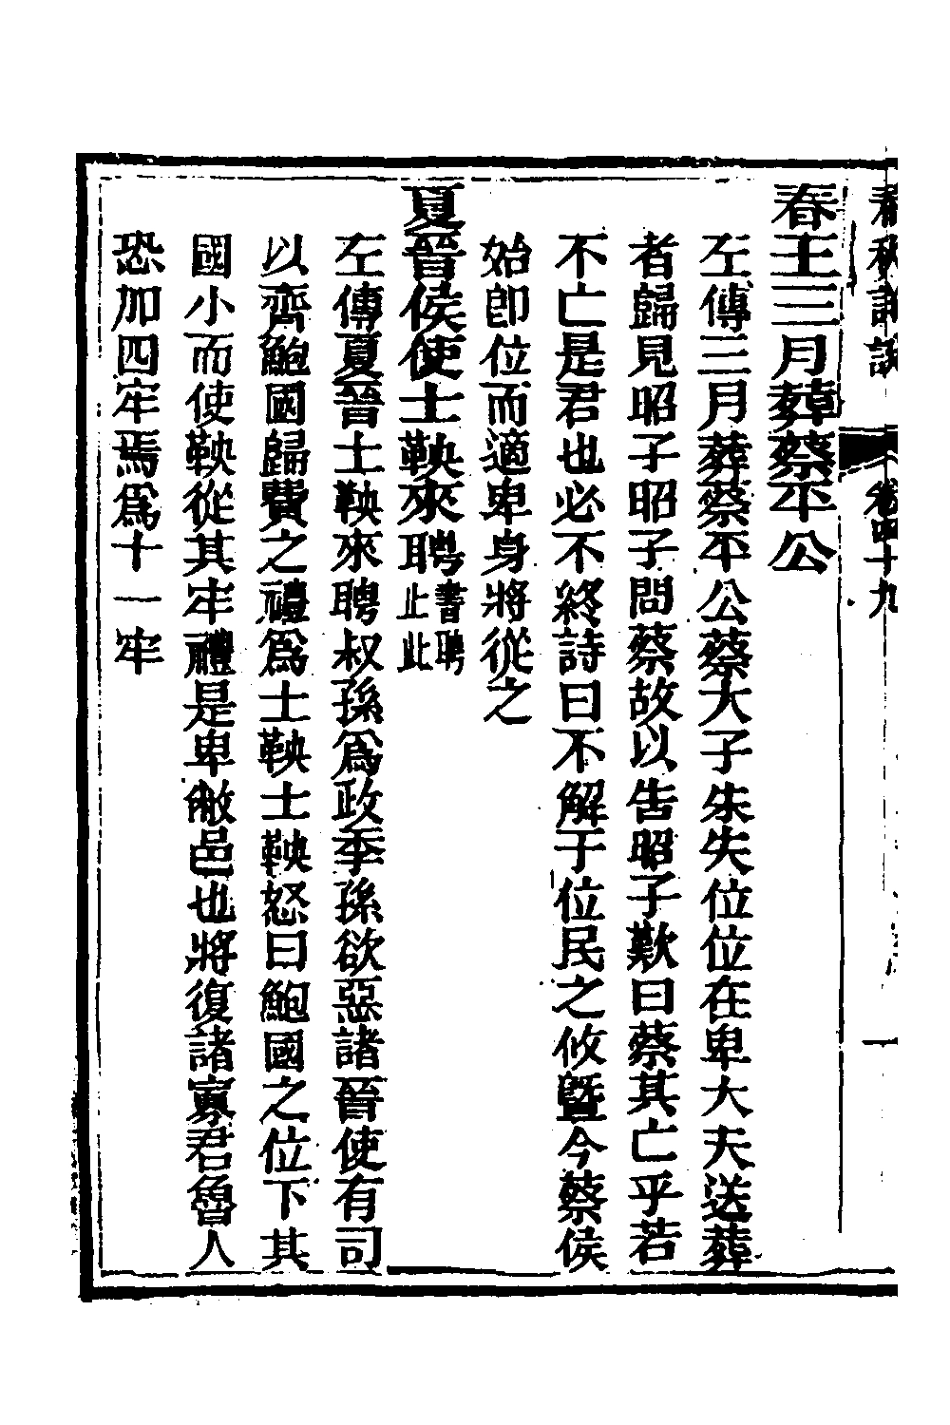 春王三月葬蔡平公
左傳三月葬蔡平公蔡大子朱失位位在卑大夫送葬
者歸見昭子昭子問蔡故以告昭子歎曰蔡其亡乎若
不亡是君也必不終詩曰不解于位民之攸曁今蔡侯
始卽位而適卑身將從之
夏晉侯使士鞅來聘書聘止此
左傳夏晉士鞅來聘叔孫爲政季孫欲惡諸晉使有司
以齊鮑國歸費之禮爲士鞅士鞅怒曰鮑國之位下其
國小而使鞅從其牢禮是卑敝邑也將復諸寡君魯人
恐加四牢焉爲十一牢
卷四十九
一